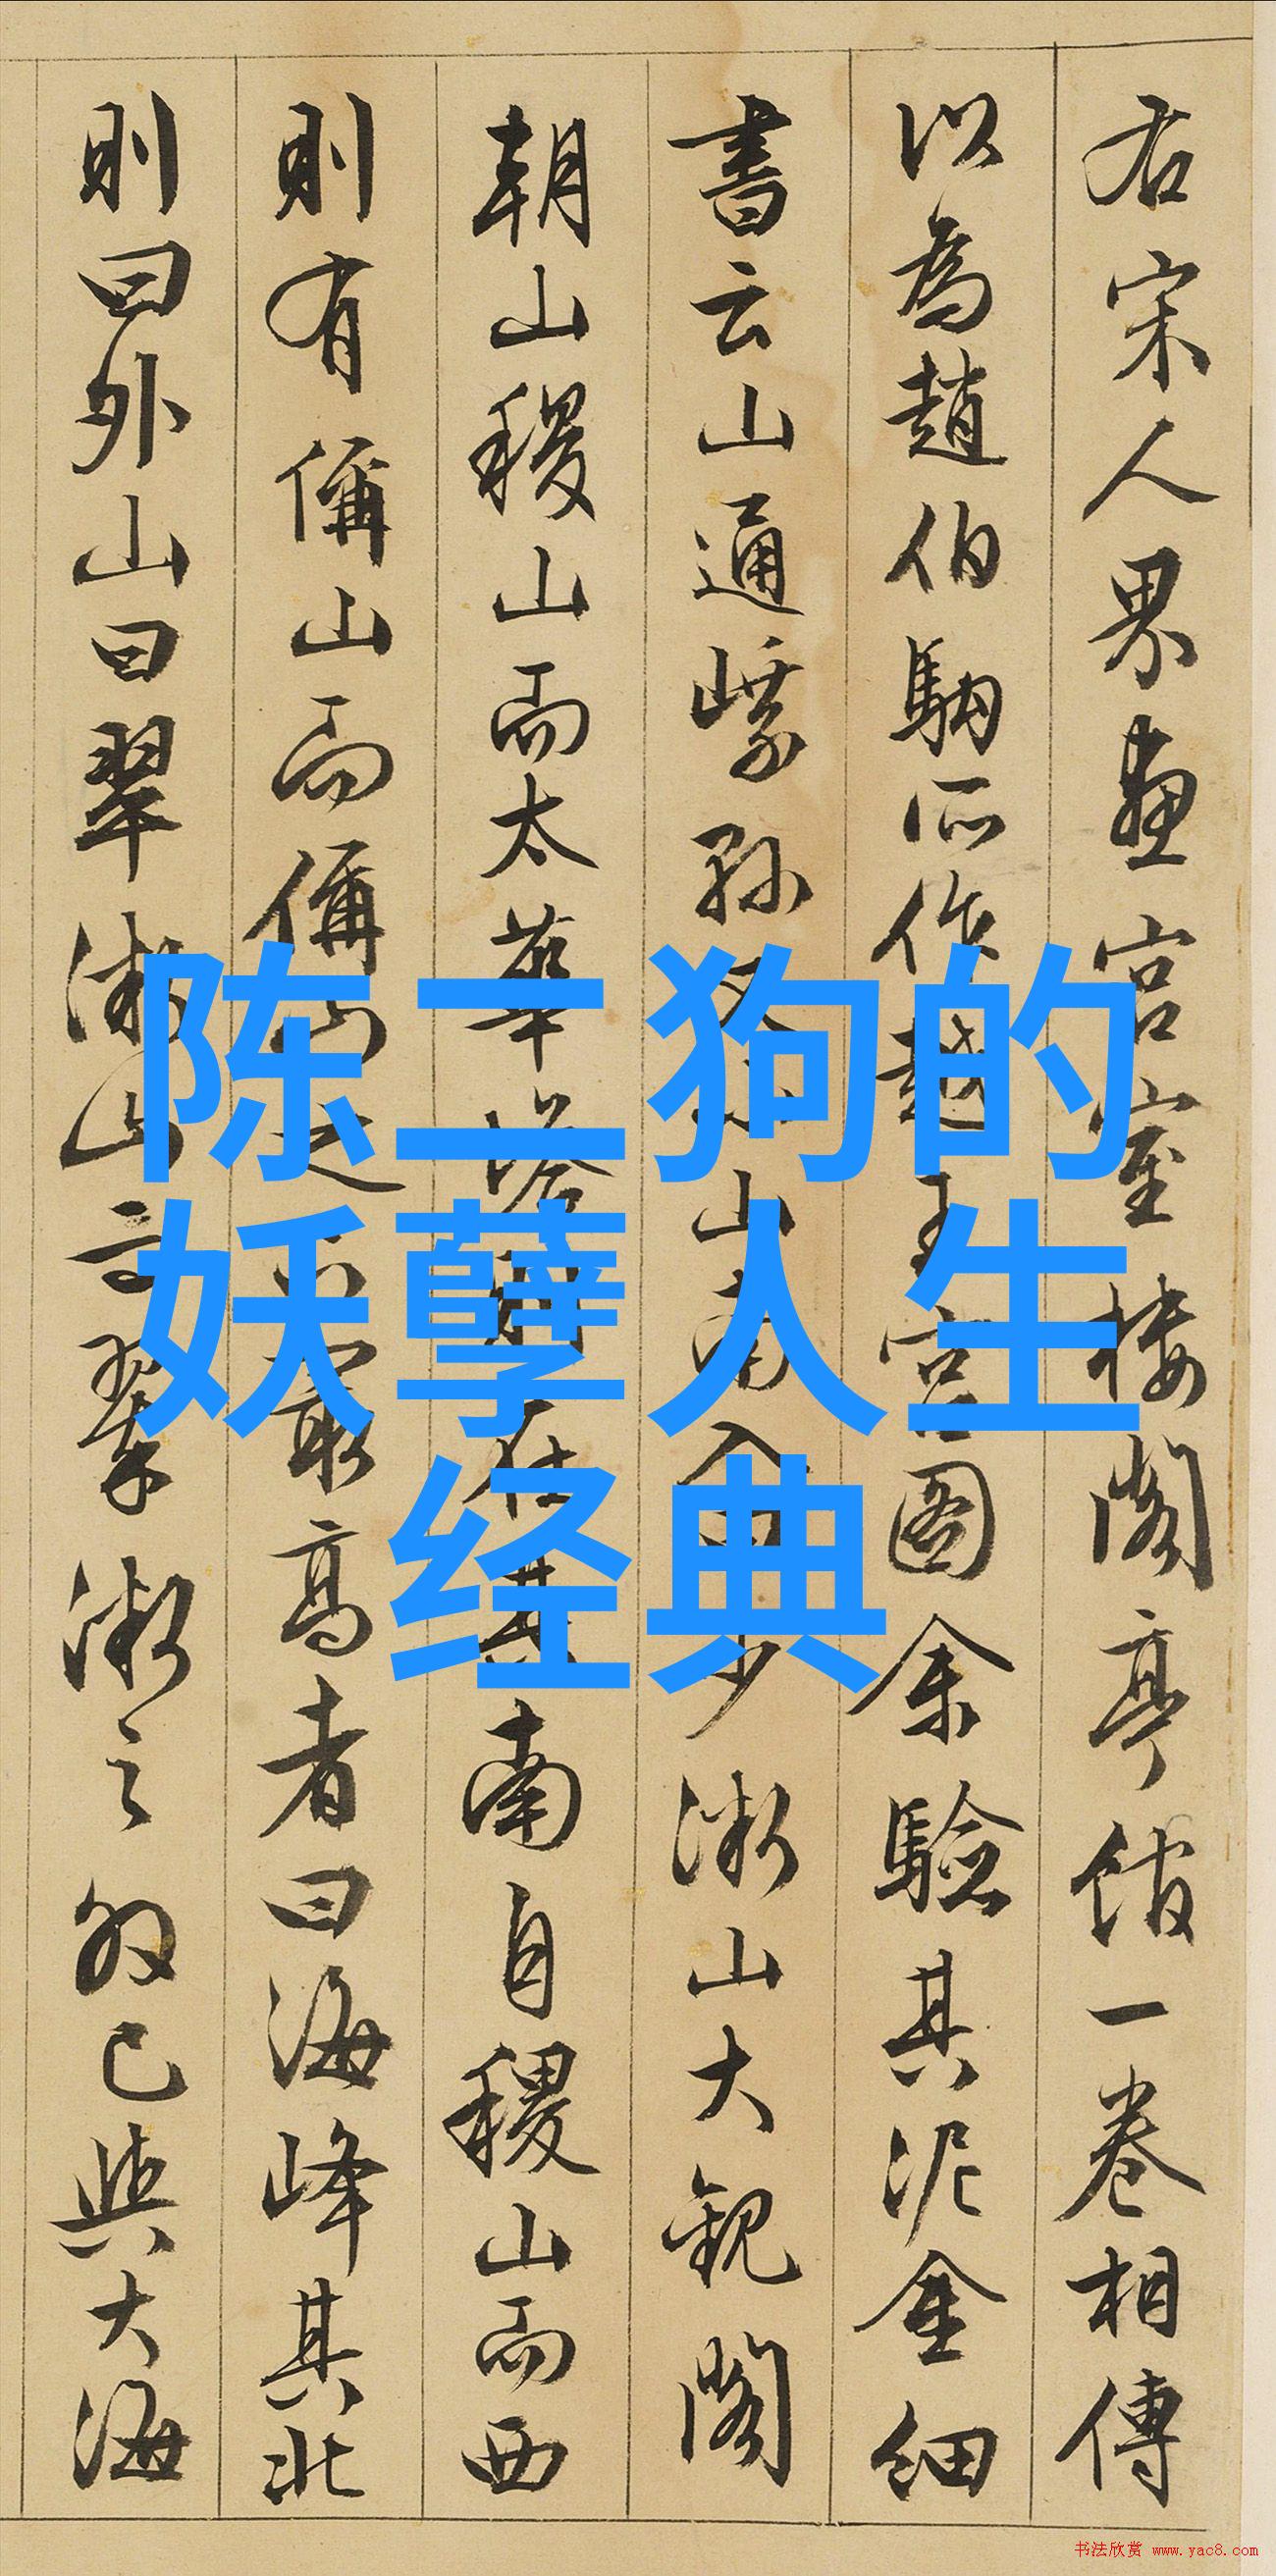 右宋人界畫宮室樓閣亭館一卷相傳
以為趙伯駒所作越王宮圖余驗其泥金細
書云山通
山南入
少漱山大觀閣
朝山稷山而太華
在其南自稷山而西
則有偁山而偁山之
最高者曰海峰其北
則曰外山曰翠漱山
翠漱之
已與大海
陈二狗的
妖孽人生
经典
书法欣赏 www.yac8.com